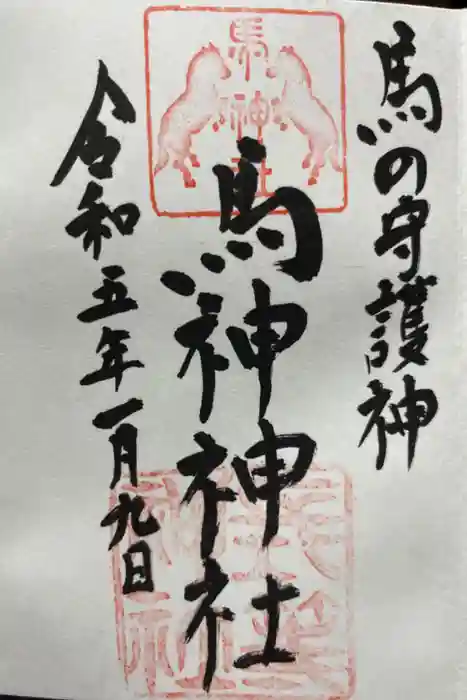 馬の守護神
馬神社
馬神神社
令和五年一月九日